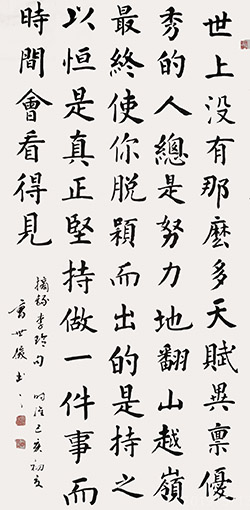 世上没有那麼多天賦異禀優
秀的人總是努力地翻山越嶺
最終使你脱穎而出的是持之
以恒是真正堅持做一件事而
時間會看得見
句
己亥初夏
世 書